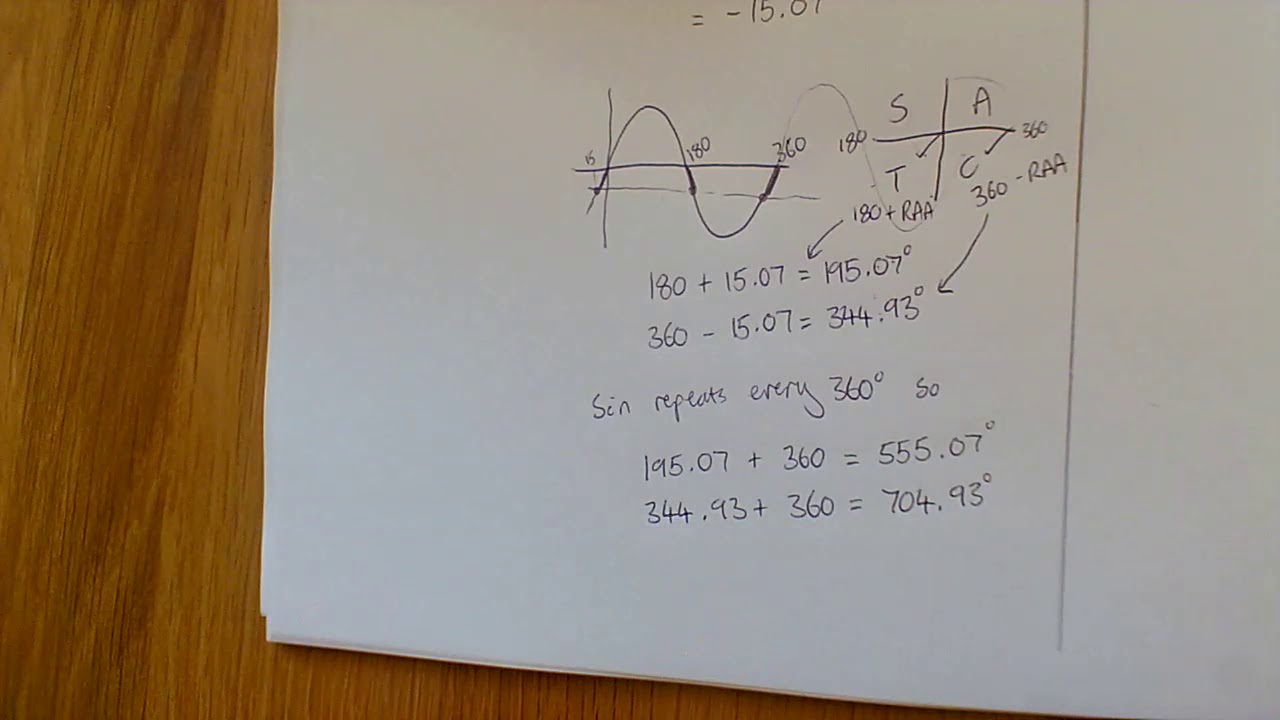 = -15.07
S A
15 180 360 180 360
T C
180 + RAA 360 - RAA
180 + 15.07 = 195.07°
360 - 15.07 = 344.93°
Sin repeats every 360° so
195.07 + 360 = 555.07°
344.93 + 360 = 704.93°